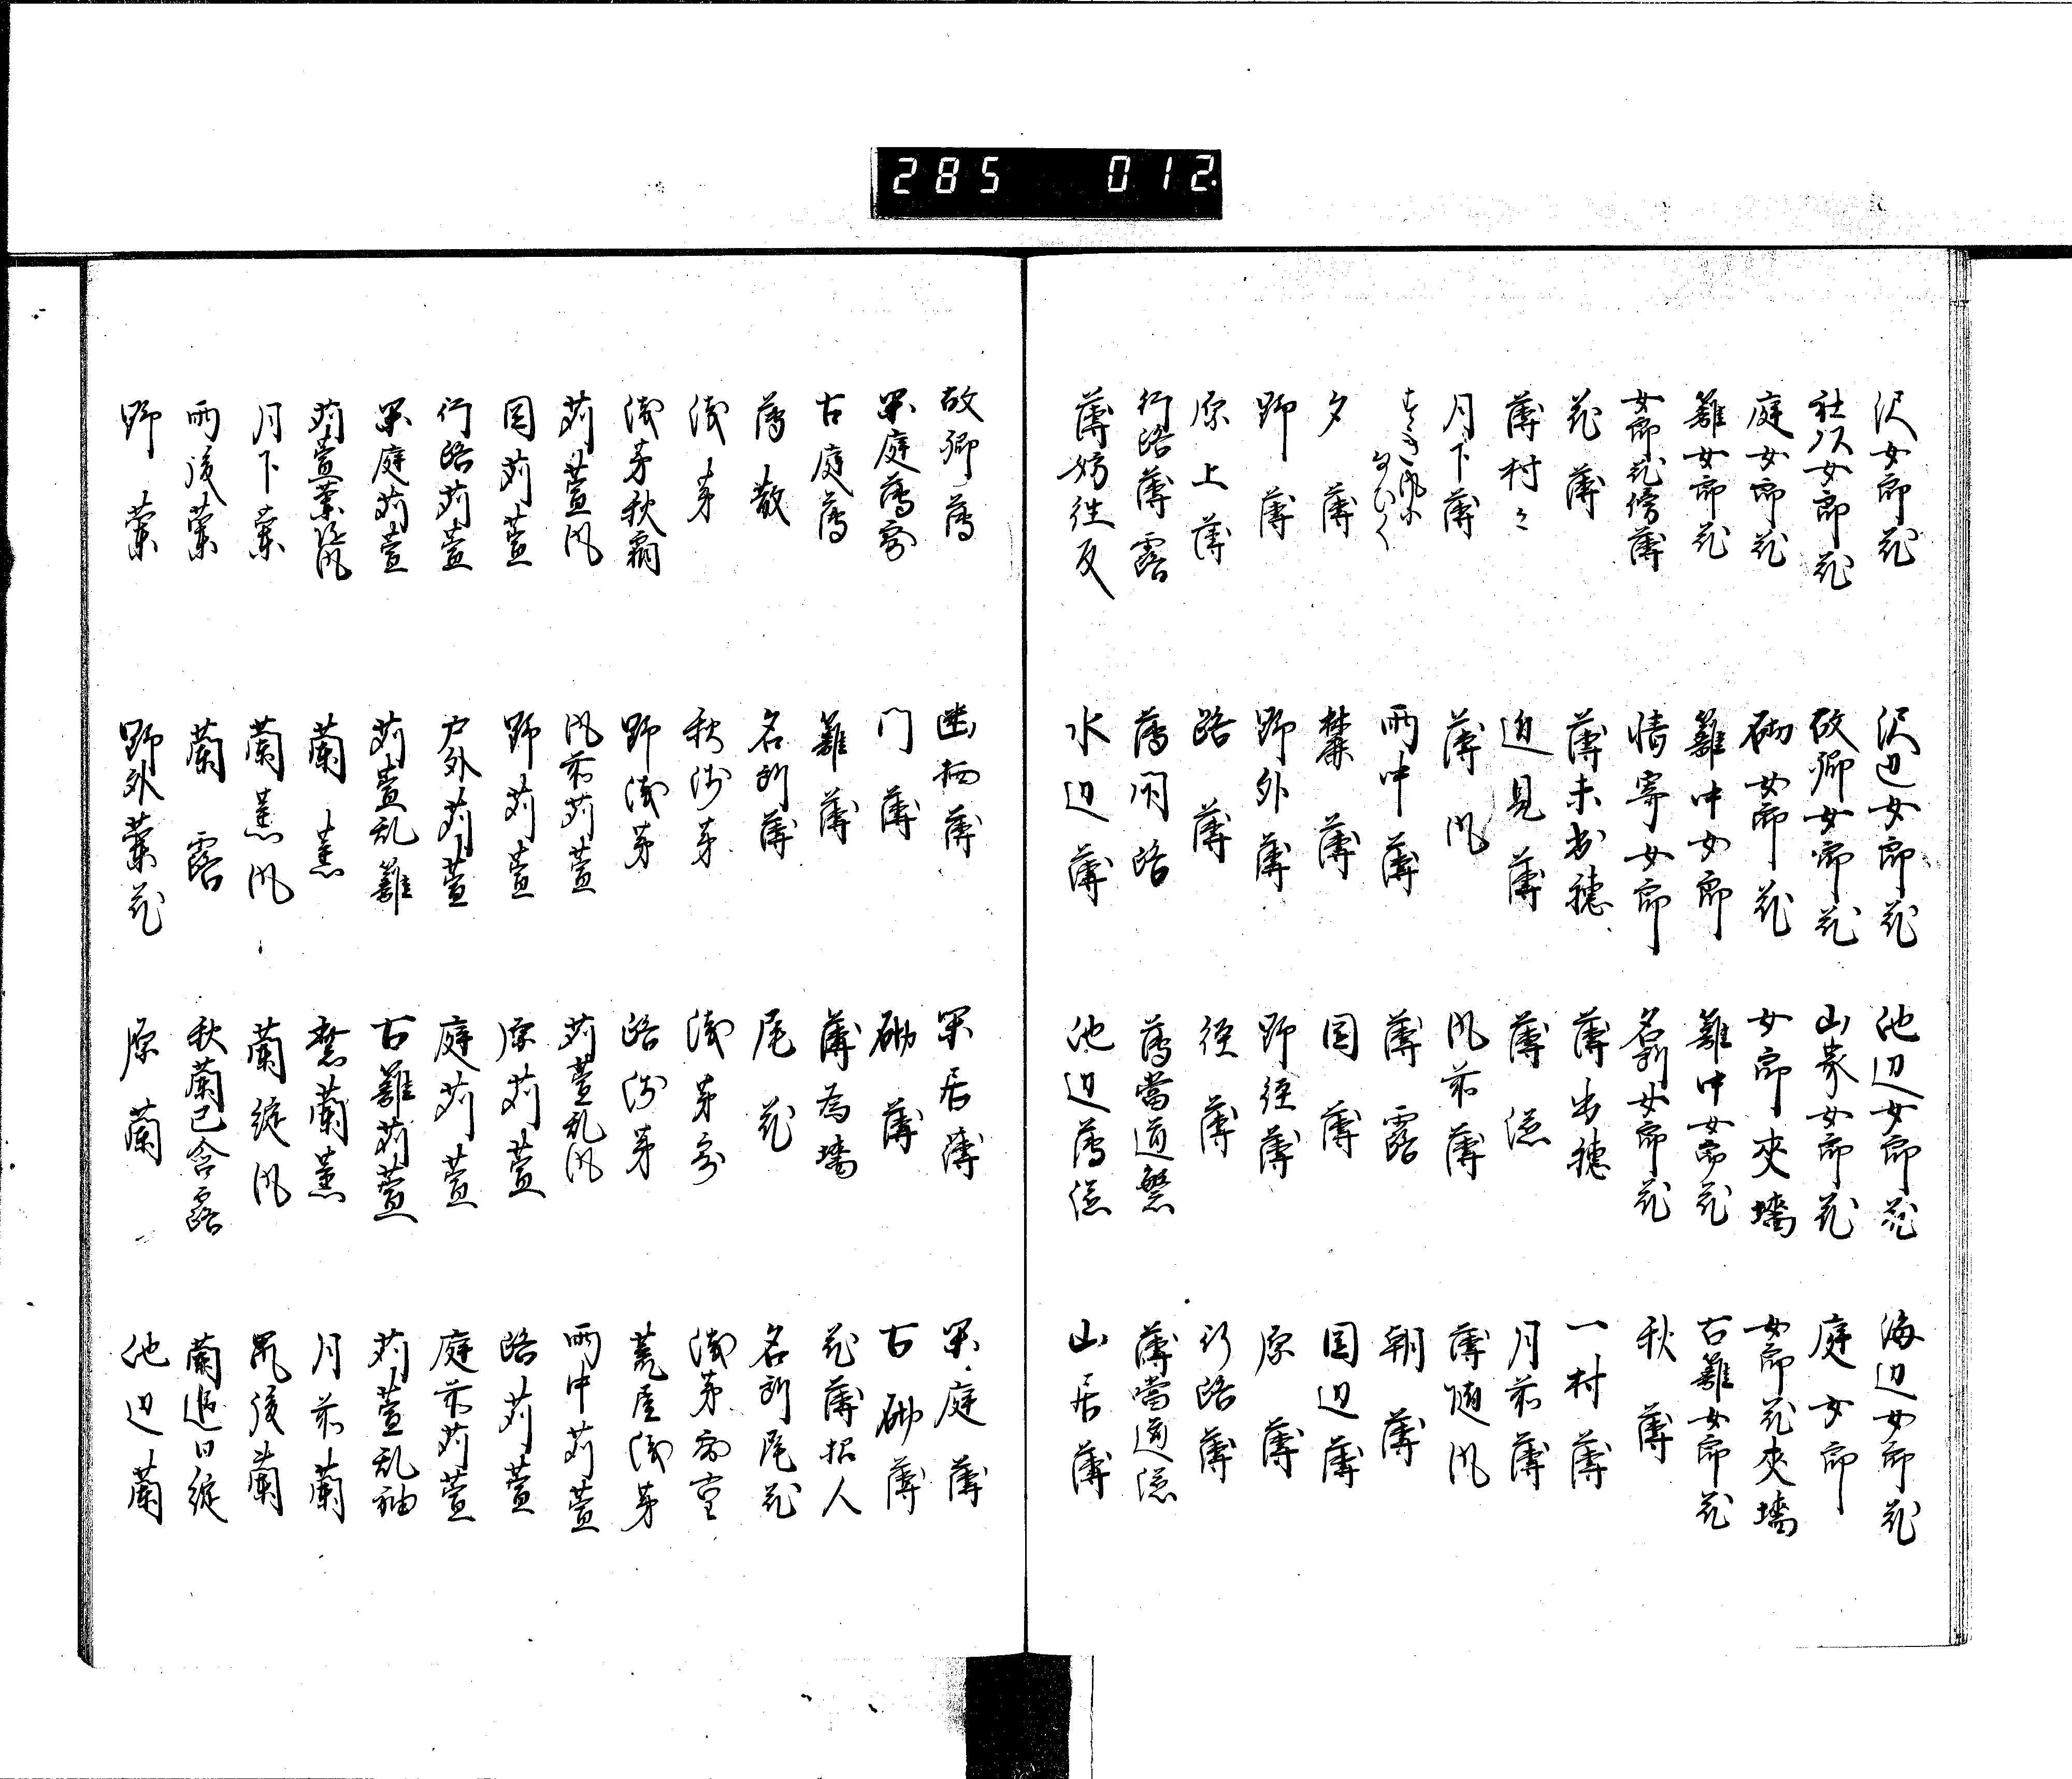 285 012
沢女郎花 沢辺女郎花 池辺女郎花 海辺女郎花
社頭女郎花 故郷女郎花 山家女郎花 庭女郎
庭女郎花 砌女郎花 女郎夾墻 女郎花夾墻
籬女郎花 籬中女郎 籬中女郎花 古籬女郎花
女郎花傍薄 情寄女郎 名所女郎花 秋薄
花薄 薄未出穂 薄出穂 一村薄
薄村々 迫見薄 薄滋 月前薄
月下薄 薄风 风前薄 薄随风
すゝき風になひく 雨中薄 薄露 朝薄
夕薄 叢薄 園薄 園辺薄
野薄 野外薄 野径薄 原薄
原上薄 路薄 径薄 行路薄
行路薄露 薄閉路 薄當道繁 薄當道滋
薄妨往反 水辺薄 池辺薄滋 山居薄
故郷薄 幽栖薄 閑居薄 閑庭薄
閑庭薄寄 门薄 砌薄 古砌薄
古庭薄 籬薄 薄為墻 花薄招人
薄散 名所薄 尾花 名所尾花
浅茅 秋浅茅 浅茅露 浅茅露重
浅茅秋霜 野浅茅 路浅茅 荒屋浅茅
苅萱风 风前苅萱 苅萱乱风 雨中苅萱
園苅萱 野苅萱 原苅萱 路苅萱
行路苅萱 戸外苅萱 庭苅萱 庭前苅萱
閑庭苅萱 苅萱乱籬 古籬苅萱 苅萱乱袖
苅萱乱风 蘭薫 叢蘭薫 月前蘭
月下蘭 蘭薫风 蘭綻风 风後蘭
雨後蘭 蘭露 秋蘭已含露 蘭逐日綻
野蘭 野外蘭花 原蘭 池辺蘭